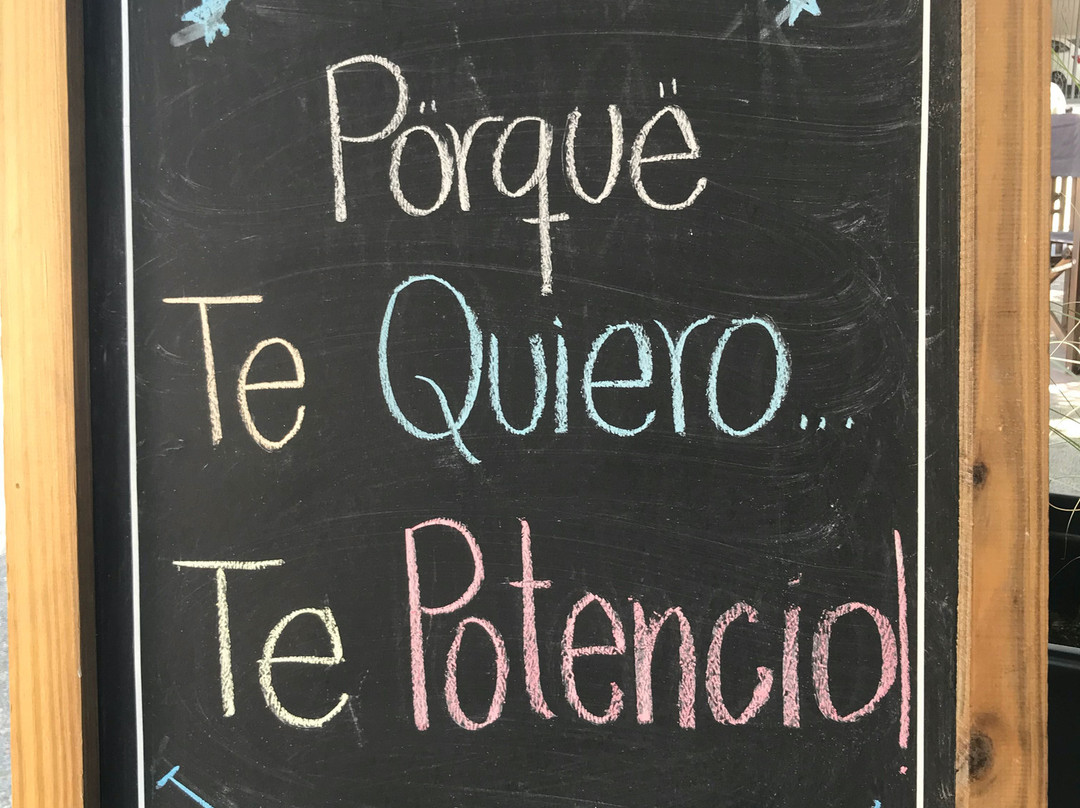 Pörquë
Te Quiero...
Te Potencio!